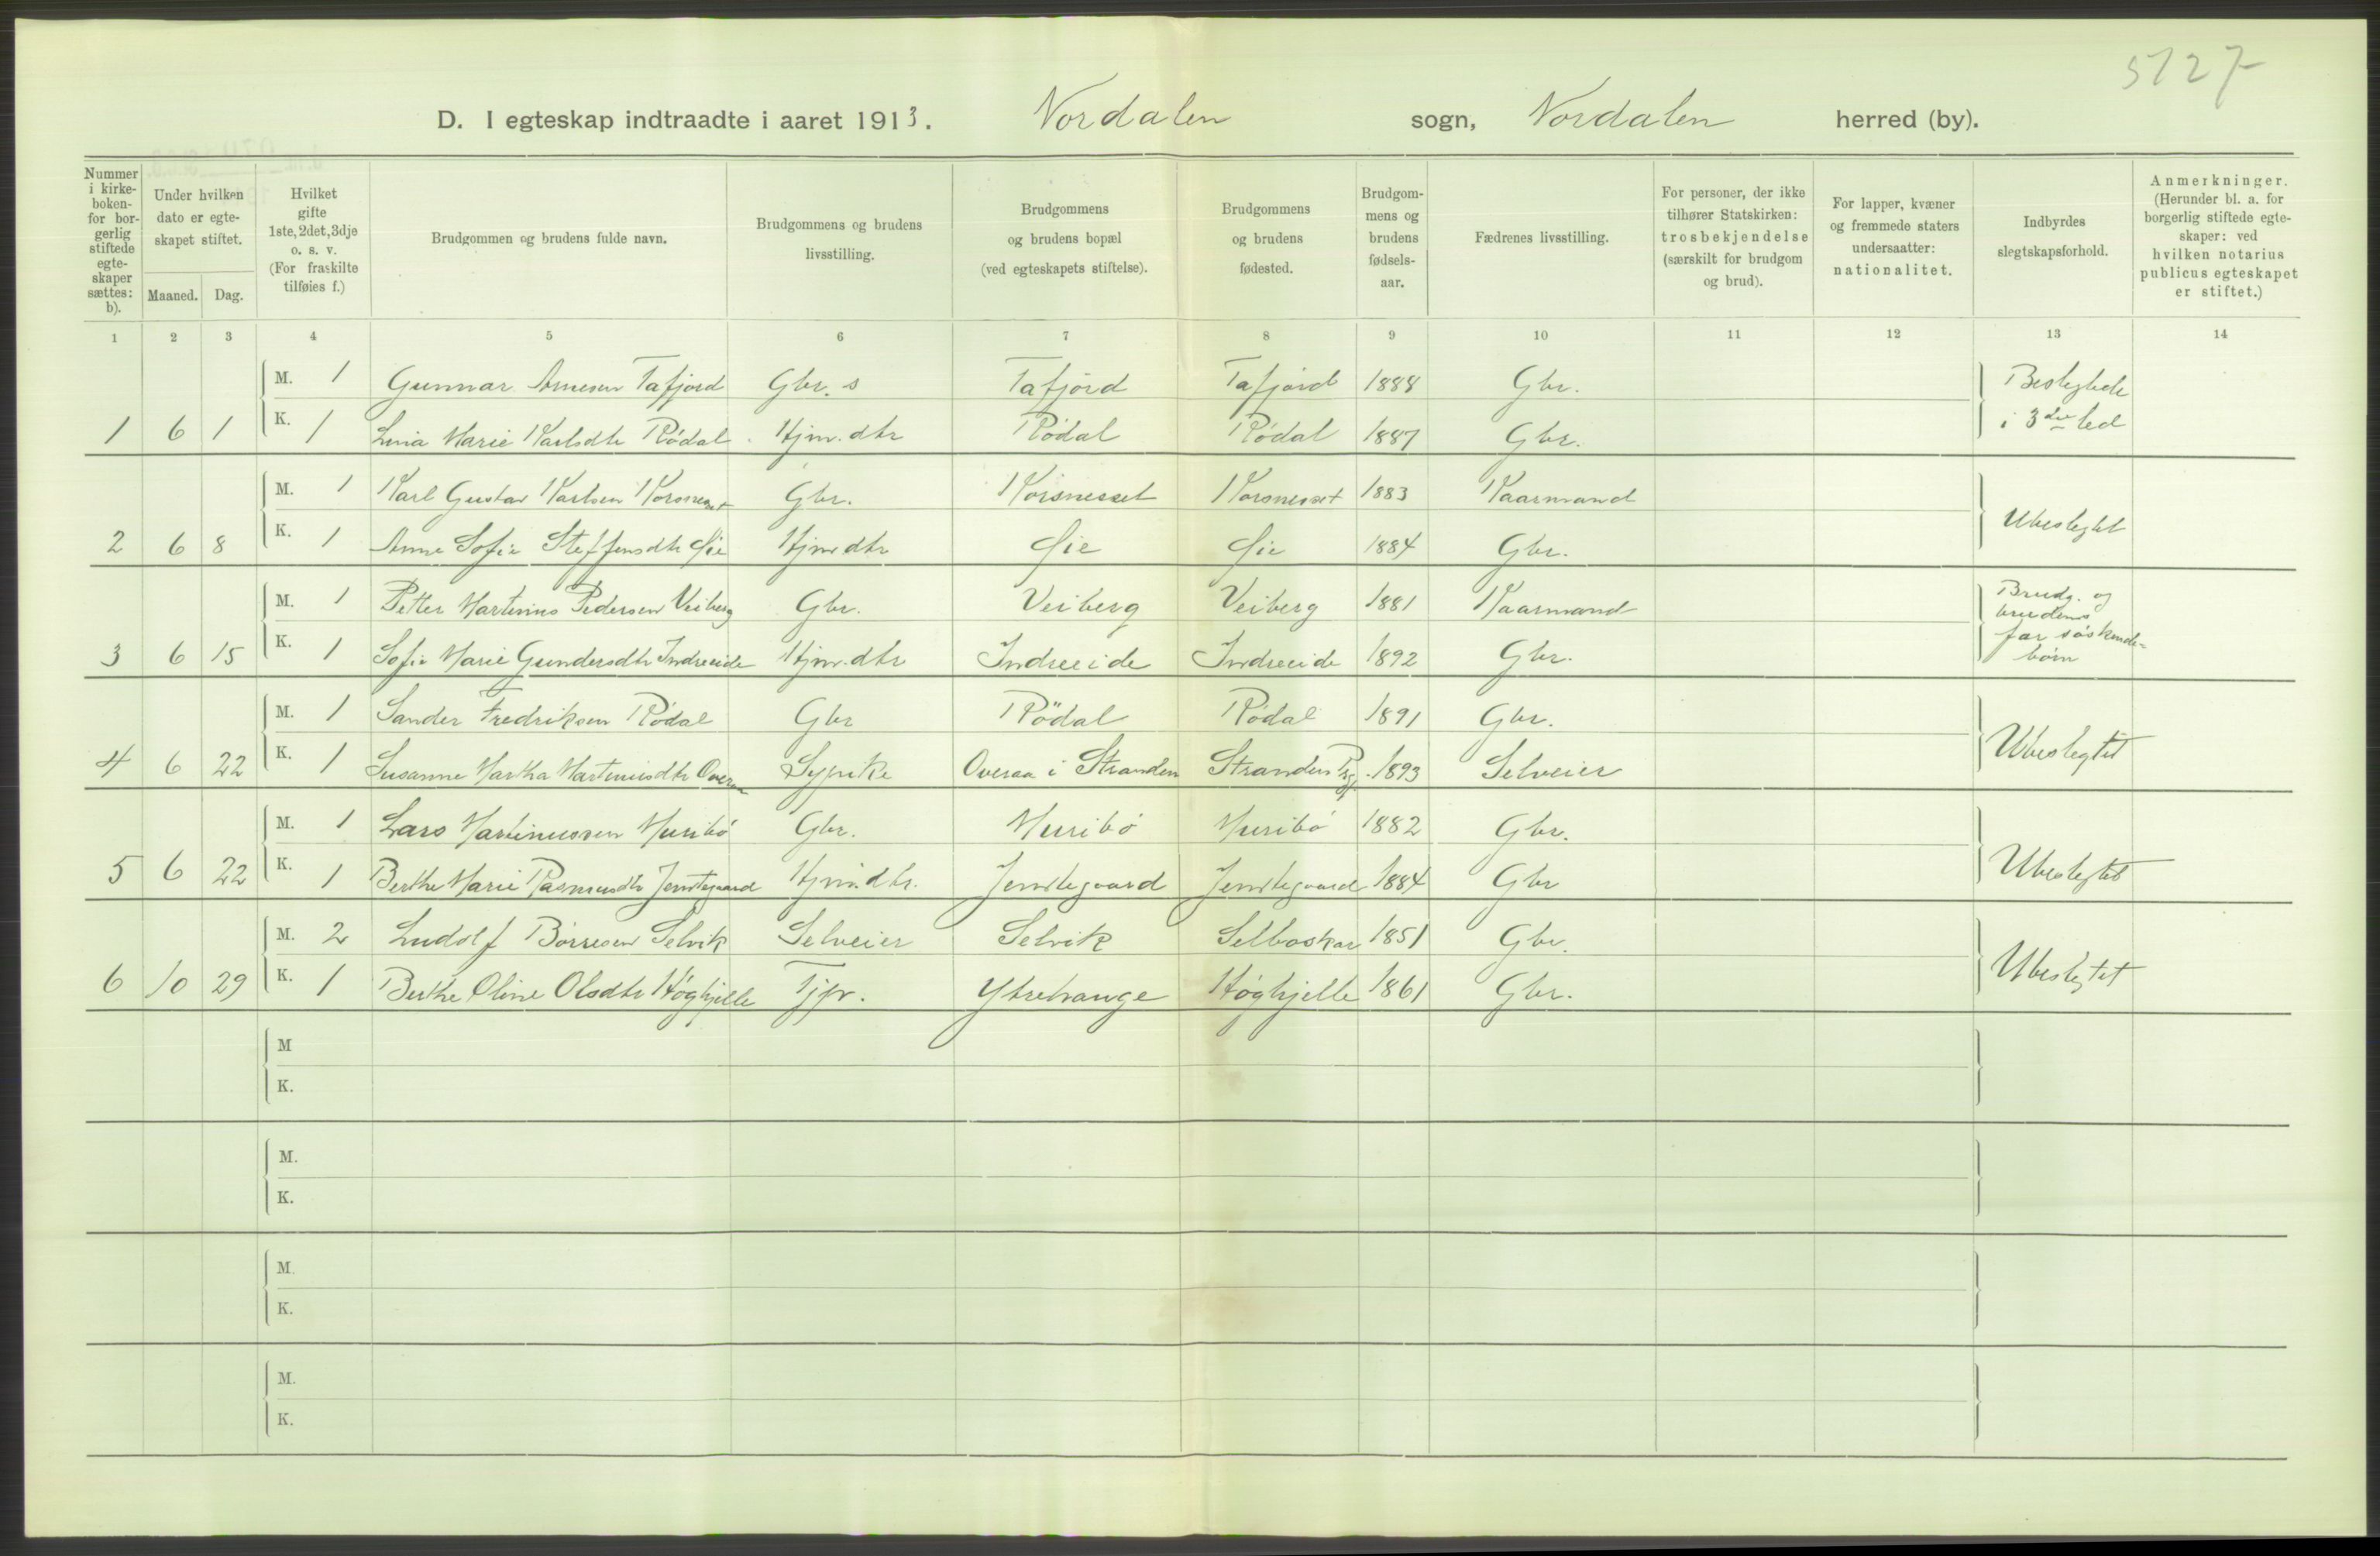 5127
D. I egteskap indtraadte i aaret 1913. Nordalen sogn, Nordalen herred (by).
Nummer i kirkeboken- for borgerlig stiftede egteskaper sættes: b).
Under hvilken dato er egteskapet stiftet.
Maaned. Dag.
Hvilket gifte 1ste, 2det, 3dje o. s. v. (For fraskilte tilføies f.)
Brudgommen og brudens fulde navn.
Brudgommens og brudens livsstilling.
Brudgommens og brudens bopæl (ved egteskapets stiftelse).
Brudgommens og brudens fødested.
Brudgommens og brudens fødselsaar.
Fædrenes livsstilling.
For personer, der ikke tilhører Statskirken: trosbekjendelse (særskilt for brudgom og brud).
For lapper, kvæner og fremmede staters undersaatter: nationalitet.
Indbyrdes slegtskapsforhold.
Anmerkninger. (Herunder bl. a. for borgerlig stiftede egteskaper: ved hvilken notarius publicus egteskapet er stiftet.)
1 2 3 4 5 6 7 8 9 10 11 12 13 14
M. 1 Gunnar Arnesen Tafjord Gbr. s Tafjord Tafjord 1888 Gbr. Beslegtede
1 6 1 K. 1 Marie Karlsdtr Rødal Hjm. dtr Rødal Rødal 1887 Gbr. i 3die led
M. 1 Karl Gustav Karlsen Korsnesset Gbr. Korsnesset Korsnesset 1883 Kaarmand
2 6 8 K. 1 Anne Sofie Steffensdtr Øie Hjm dtr Øie Øie 1884 Gbr. Ubeslegtet
M. 1 Petter Martinus Pedersen Veiberg Gbr. Veiberg Veiberg 1881 Kaarmand Brudg. og brudens
3 6 15 K. 1 Sofie Marie Gundersdtr Indreeide Hjm. dtr Indreeide Indreeide 1892 Gbr. far søskendebørn
M. 1 Sander Fredriksen Rødal Gbr Rödal Rødal 1891 Gbr.
4 6 22 K. 1 Susanne Martha Martinusdtr Overaa Sypike Overaa i Stranden Stranden Prg. 1893 Selveier Ubeslegtet
M. 1 Lars Martinussen Muribø Gbr. Muribø Muribø 1882 Gbr.
5 6 22 K. 1 Berthe Marie Rasmusdtr Jemtegaard Hjm. dtr. Jemtegaard Jemtegaard 1884 Gbr Ubeslegtet
M. 2 Ludolf Børresen Selvik Selveier Selvik Selboskar 1851 Gbr.
6 10 29 K. 1 Berthe Oline Olsdtr Høghjelle Tjp. Høghjelle 1861 Gbr. Ubeslegtet
M
K.
M.
K.
M.
K.
M.
K.